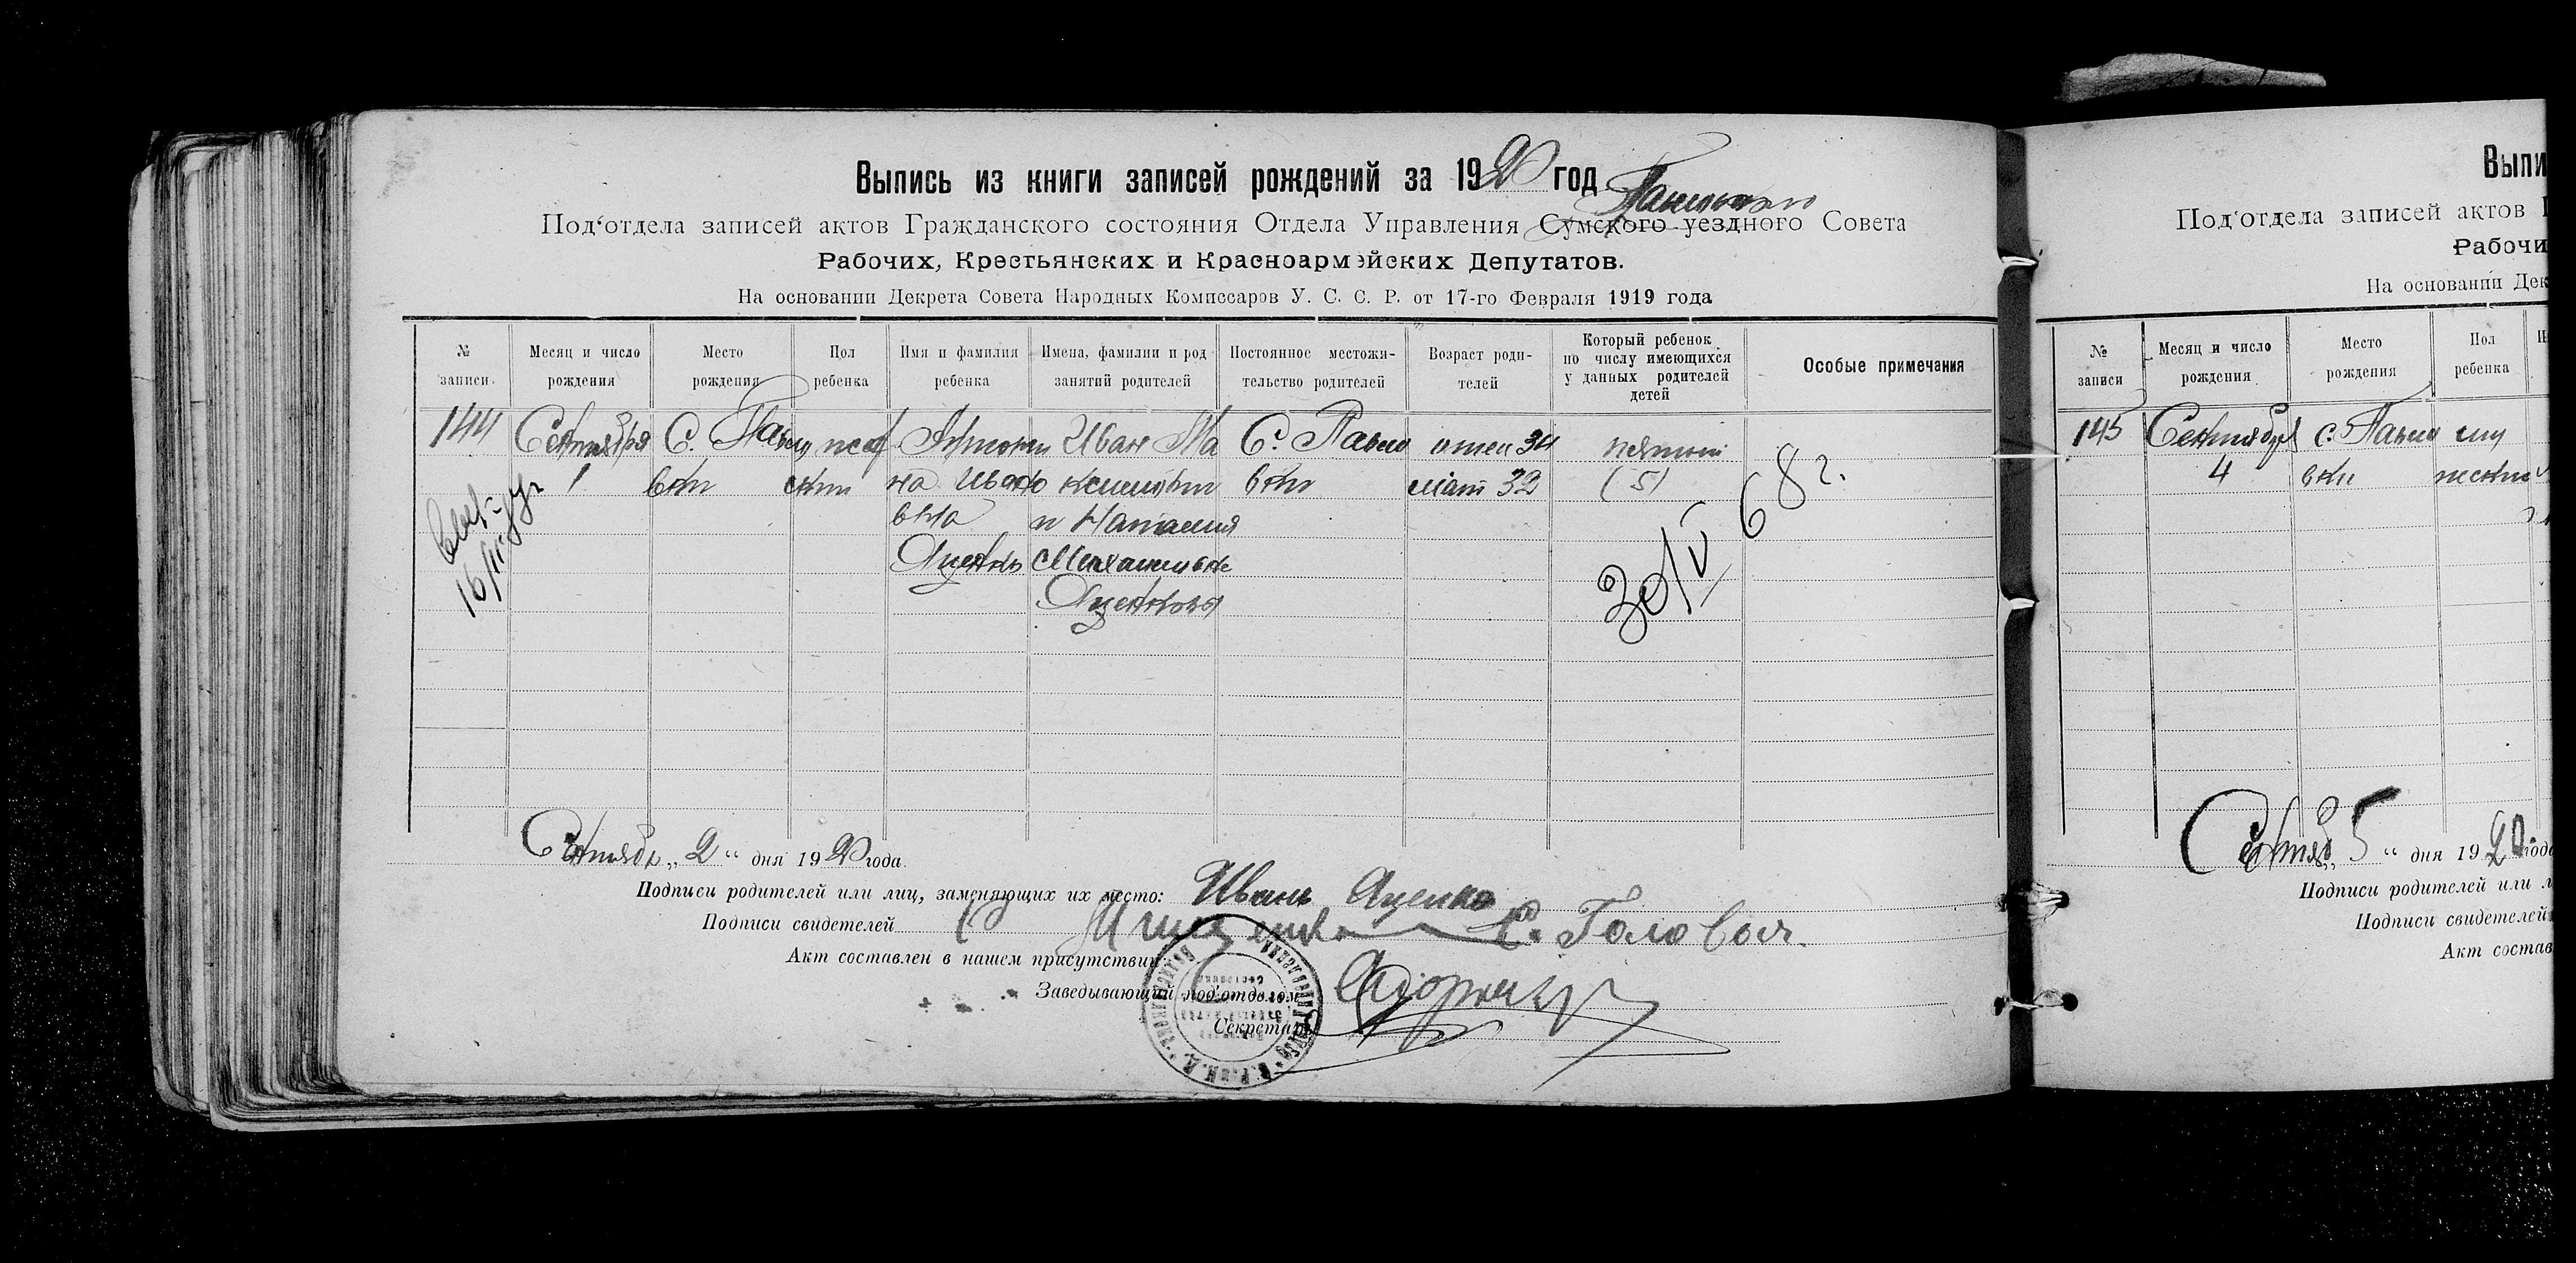 Выпись из книги записей рождений за 1920 год
Под'отдела записей актов Гражданского состояния Отдела Управления Сумского уездного Совета
Рабочих, Крестьянских и Красноармейских Депутатов.
На основании Декрета Совета Народных Комиссаров У. С. С. Р. от 17-го Февраля 1919 года
№ записи
Месяц и число рождения
Место рождения
Пол ребенка
Имя и фамилия ребенка
Имена, фамилии и род занятий родителей
Постоянное местожительство родителей
Возраст родителей
Который ребенок по числу имеющихся у данных родителей детей
Особые примечания
144 Сентября С. Павло Иван Ма С. Павло отец 34 пятый
1 вки ский на Ивано вки мат 32 (5)
вна и Наталия
Яценко Михайловне
Яценковы
30/V 68 г.
Сентябр „ 2 “ дня 1920 года.
Подписи родителей или лиц, заменяющих их место: Иванъ Яценко
Подписи свидетелей С. Головач.
Акт составлен в нашем присутствии
Заведывающий под'отделом
Секретарь
Выпи
Под'отдела записей актов
Рабочи
На основании Дек
№ записи
Месяц и число рождения
Место рождения
Пол ребенка
145 Сентября с. Павло
4 вки
Сентяб „ 5 “ дня 1920 года
Подписи родителей или л
Подписи свидетелей
Акт состав